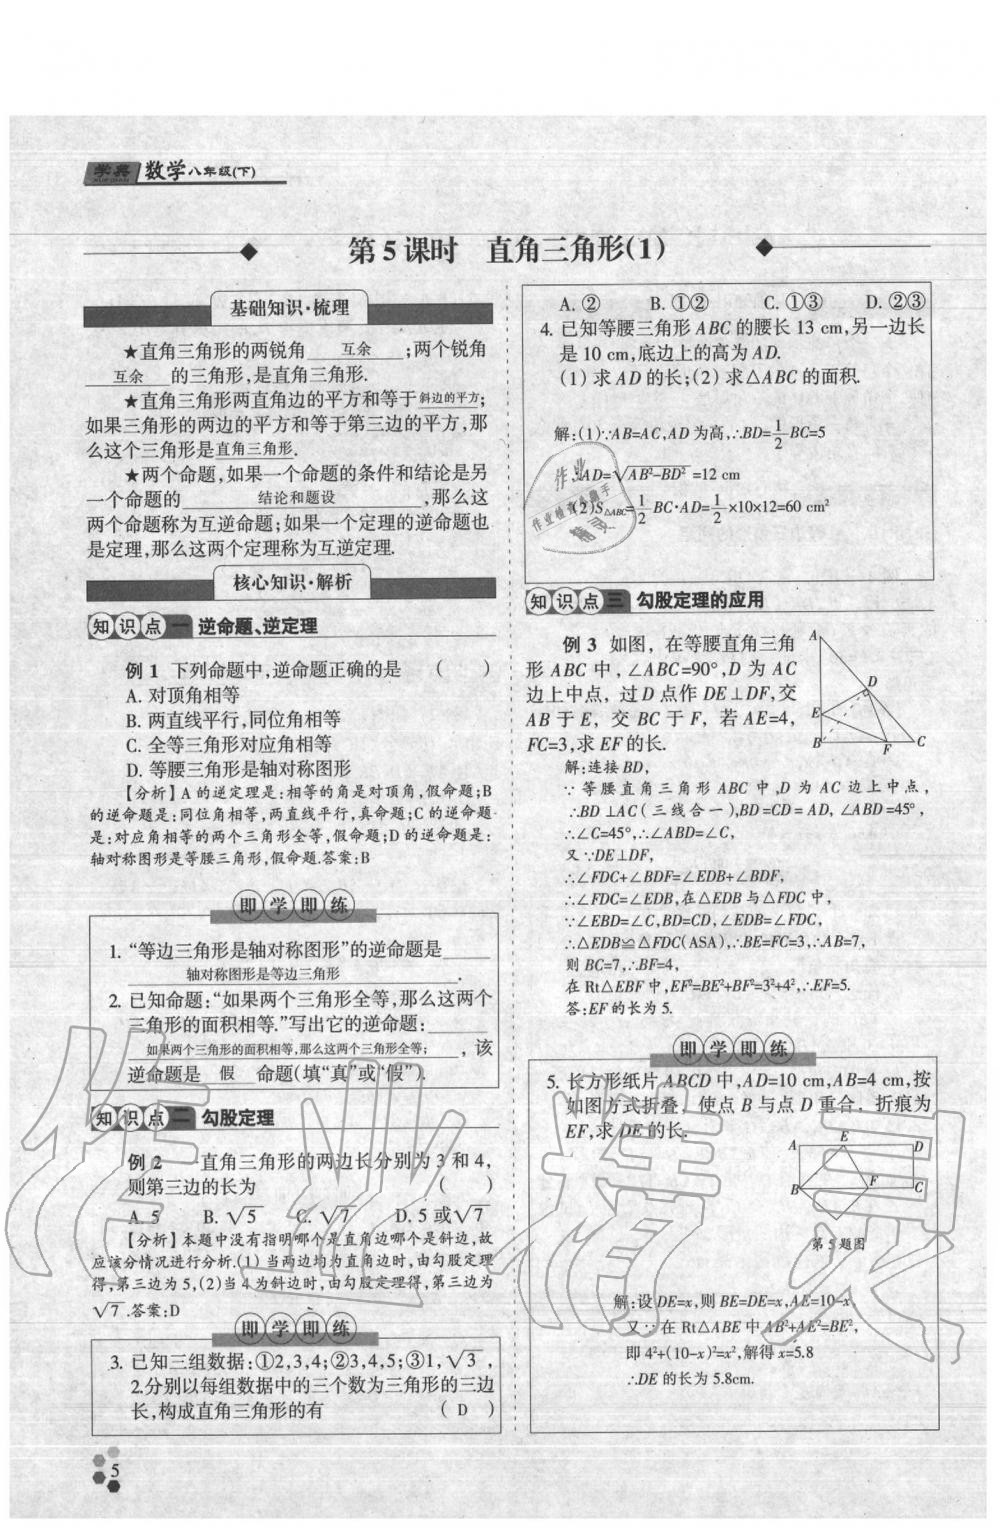 学典 数学八年级(下)
XUEDIAN
第5课时 直角三角形(1)
基础知识·梳理
★直角三角形的两锐角 互余 ;两个锐角
互余 的三角形,是直角三角形.
★直角三角形两直角边的平方和等于斜边的平方;
如果三角形的两边的平方和等于第三边的平方,那
么这个三角形是直角三角形.
★两个命题,如果一个命题的条件和结论是另
一个命题的 结论和题设 ,那么这
两个命题称为互逆命题;如果一个定理的逆命题也
是定理,那么这两个定理称为互逆定理.
核心知识·解析
知识点一 逆命题、逆定理
例1 下列命题中,逆命题正确的是 ( )
A. 对顶角相等
B. 两直线平行,同位角相等
C. 全等三角形对应角相等
D. 等腰三角形是轴对称图形
【分析】A 的逆定理是:相等的角是对顶角,假命题;B
的逆命题是:同位角相等,两直线平行,真命题;C的逆命题
是:对应角相等的两个三角形全等,假命题;D的逆命题是:
轴对称图形是等腰三角形,假命题.答案:B
即学即练
1. “等边三角形是轴对称图形”的逆命题是
轴对称图形是等边三角形 .
2. 已知命题:“如果两个三角形全等,那么这两个
三角形的面积相等.”写出它的逆命题:
如果两个三角形的面积相等,那么这两个三角形全等; ,该
逆命题是 假 命题(填“真”或“假”).
知识点二 勾股定理
例2 一直角三角形的两边长分别为3和4,
则第三边的长为 ( )
A. 5 B. √5 C. √7 D. 5或√7
【分析】本题中没有指明哪个是直角边哪个是斜边,故
应该分情况进行分析.(1)当两边均为直角边时,由勾股定理
得,第三边为5,(2)当4为斜边时,由勾股定理得,第三边为
√7.答案:D
即学即练
3. 已知三组数据:①2,3,4;②3,4,5;③1,√3,
2.分别以每组数据中的三个数为三角形的三边
长,构成直角三角形的有 ( D )
A. ② B. ①② C. ①③ D. ②③
4. 已知等腰三角形ABC的腰长13 cm,另一边长
是10 cm,底边上的高为AD.
(1)求AD的长;(2)求△ABC的面积.
解:(1)∵AB=AC,AD为高,∴BD=1/2BC=5
∴AD=√AB²-BD²=12 cm
(2)S△ABC=1/2BC·AD=1/2×10×12=60 cm²
作业
作业检查小助手
精灵
知识点三 勾股定理的应用
例3 如图,在等腰直角三角
形ABC中,∠ABC=90°,D为AC
边上中点,过D点作DE⊥DF,交
AB于E,交BC于F,若AE=4,
FC=3,求EF的长.
A
D
E
B
F
C
解:连接BD,
∵等腰直角三角形ABC中,D为AC边上中点,
∴BD⊥AC(三线合一),BD=CD=AD,∠ABD=45°,
∴∠C=45°,∴∠ABD=∠C,
又∵DE⊥DF,
∴∠FDC+∠BDF=∠EDB+∠BDF,
∴∠FDC=∠EDB,在△EDB与△FDC中,
∵∠EBD=∠C,BD=CD,∠EDB=∠FDC,
∴△EDB≌△FDC(ASA),∴BE=FC=3,∴AB=7,
则BC=7,∴BF=4,
在Rt△EBF中,EF²=BE²+BF²=3²+4²,∴EF=5.
答:EF的长为5.
即学即练
5. 长方形纸片ABCD中,AD=10 cm,AB=4 cm,按
如图方式折叠,使点B与点D重合,折痕为
EF,求DE的长.
A
E
D
B
F
C
第5题图
解:设DE=x,则BE=DE=x,AE=10-x,
又∵在Rt△ABE中AB²+AE²=BE²,
即4²+(10-x)²=x²,解得x=5.8
∴DE的长为5.8cm.
作业精灵
5